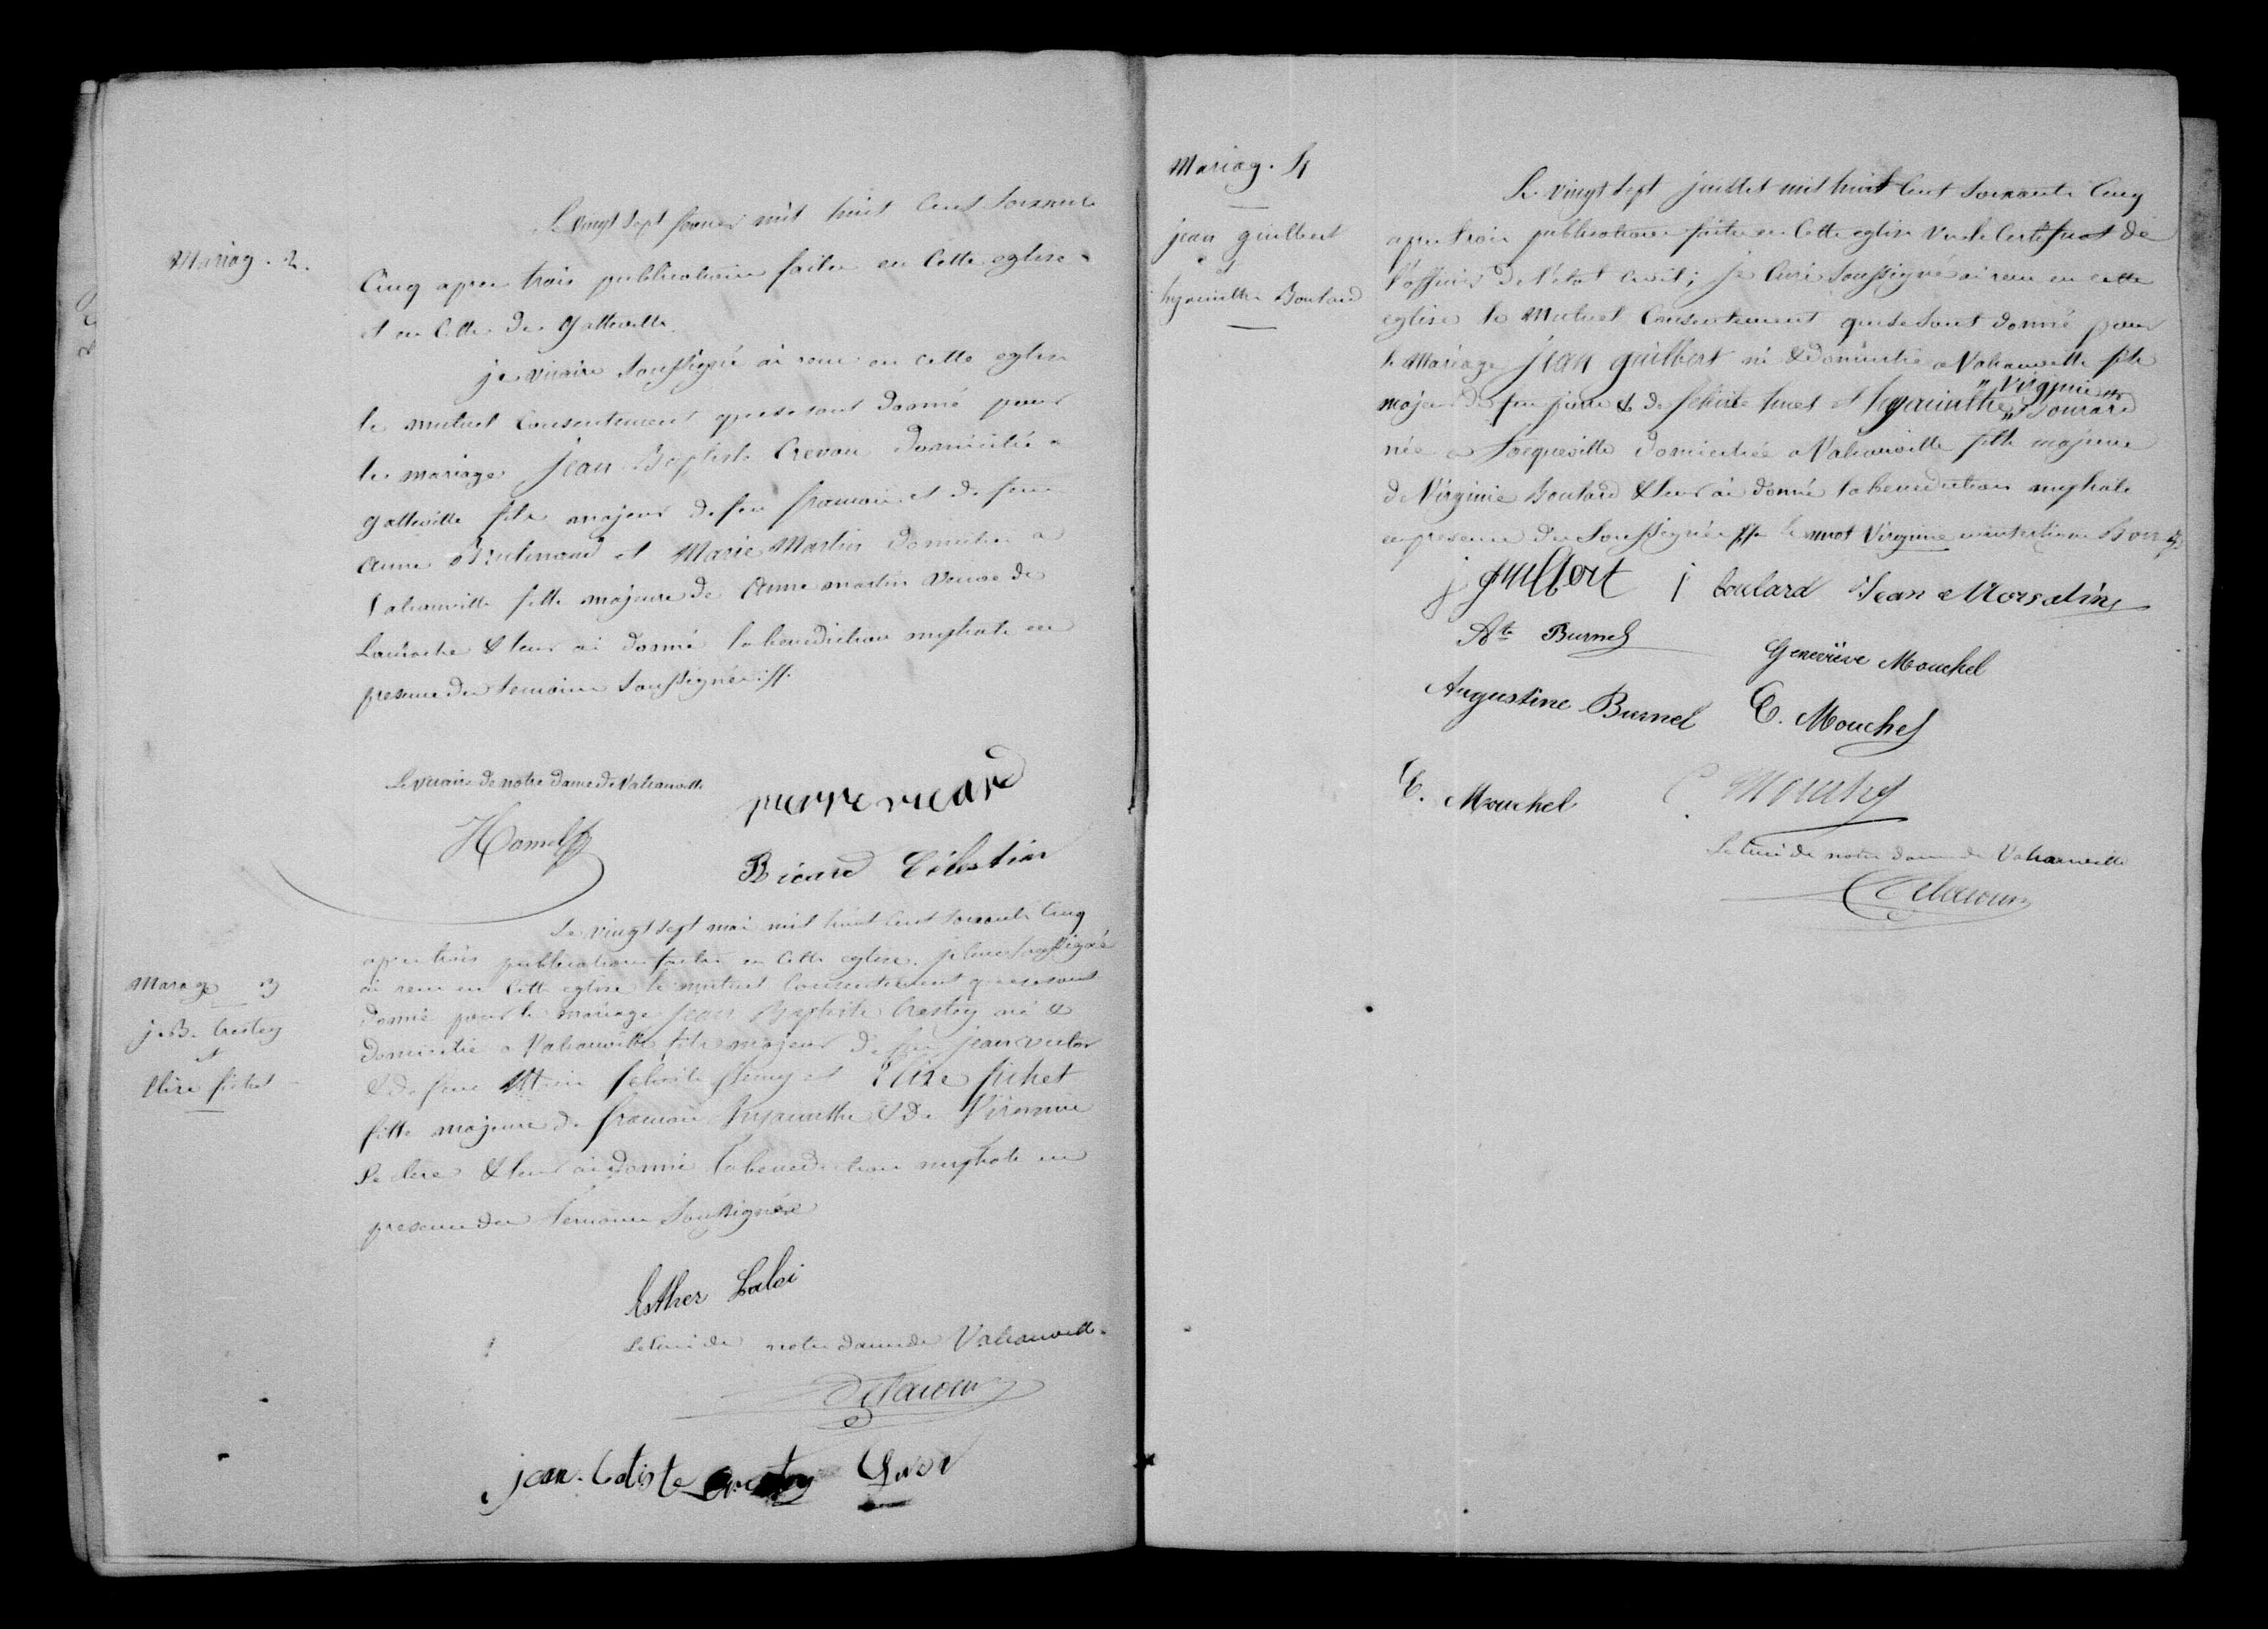 Mariag. 2.
Le vingt sept mil huit Cent Soixante
Cinq apres trois publications faites en Cette eglise
et en Celle de Gatteville
je vicaire Soussigné ai recu en cette eglise
le mutuel Consentement que se sont donné pour
le mariage jean Baptiste domicilié a
gatteville fils majeur de feu francois et de feue
Anne et Marie Martin domiciliée a
fille majeure de Anne martin Veuve de
& leur ai donné la benediction nuptiale en
presence des temoins Soussignés
Le vicaire de notre dame de Valcanville
Hamel
pierre ricard
Ricard Célestin
Mariage 3
j. B. Crestey
et
Elise fichet
Le vingt sept mai mil huit Cent Soixante Cinq
apres trois publications faites en Cette eglise, je Curé Soussigné
ai recu en Cette eglise le mutuel Consentement que se sont
donné pour le mariage jean Baptiste Crestey né &
domicilié a Valcanville fils majeur de feu jean victor
& de feue felicité et Elise fichet
fille majeure de francois hyacinthe & de
& leur ai donné la benediction nuptiale en
presence des temoins Soussignés
Esther Laloi
Le Curé de notre dame de Valcanville
Delacour
jean. batiste crestey
Mariag. 4
jean guilbert
et
hyacinthe Boulard
Le vingt sept juillet mil huit Cent Soixante Cinq
apres trois publications faites en Cette eglise Vu le Certificat de
l'officier de l'etat civil; je Curé Soussigné ai recu en cette
eglise le Mutuel Consentement que se sont donné pour
le Mariage jean guilbert né & domicilié a Valcanville fils
majeur de feu pierre & de felicité et hyacinthe "Virginie" Boulard
née a domiciliée a Valcanville fille majeure
de Virginie Boulard & leur ai donné la benediction nuptiale
en presence des Soussignés le mot Virginie en interligne Bon
j guilbert j boulard Jean Morsalines
Ate Burnel Geneviève Mouchel
Augustine Burnel E. Mouchel
E. Mouchel C. Mouchel
Le Curé de notre dame de Valcanville
Delacour